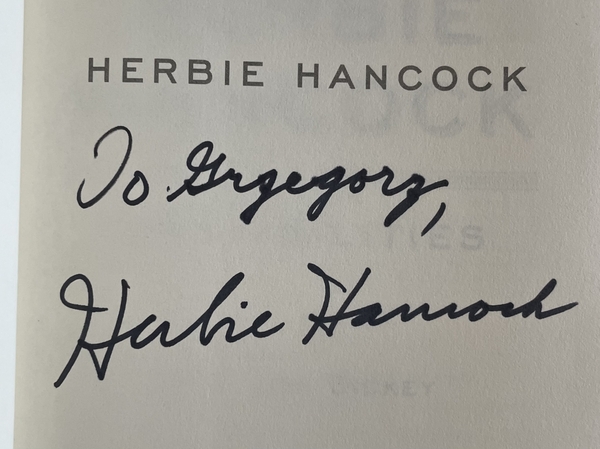 HERBIE HANCOCK
To Grzegorz,
Herbie Hancock